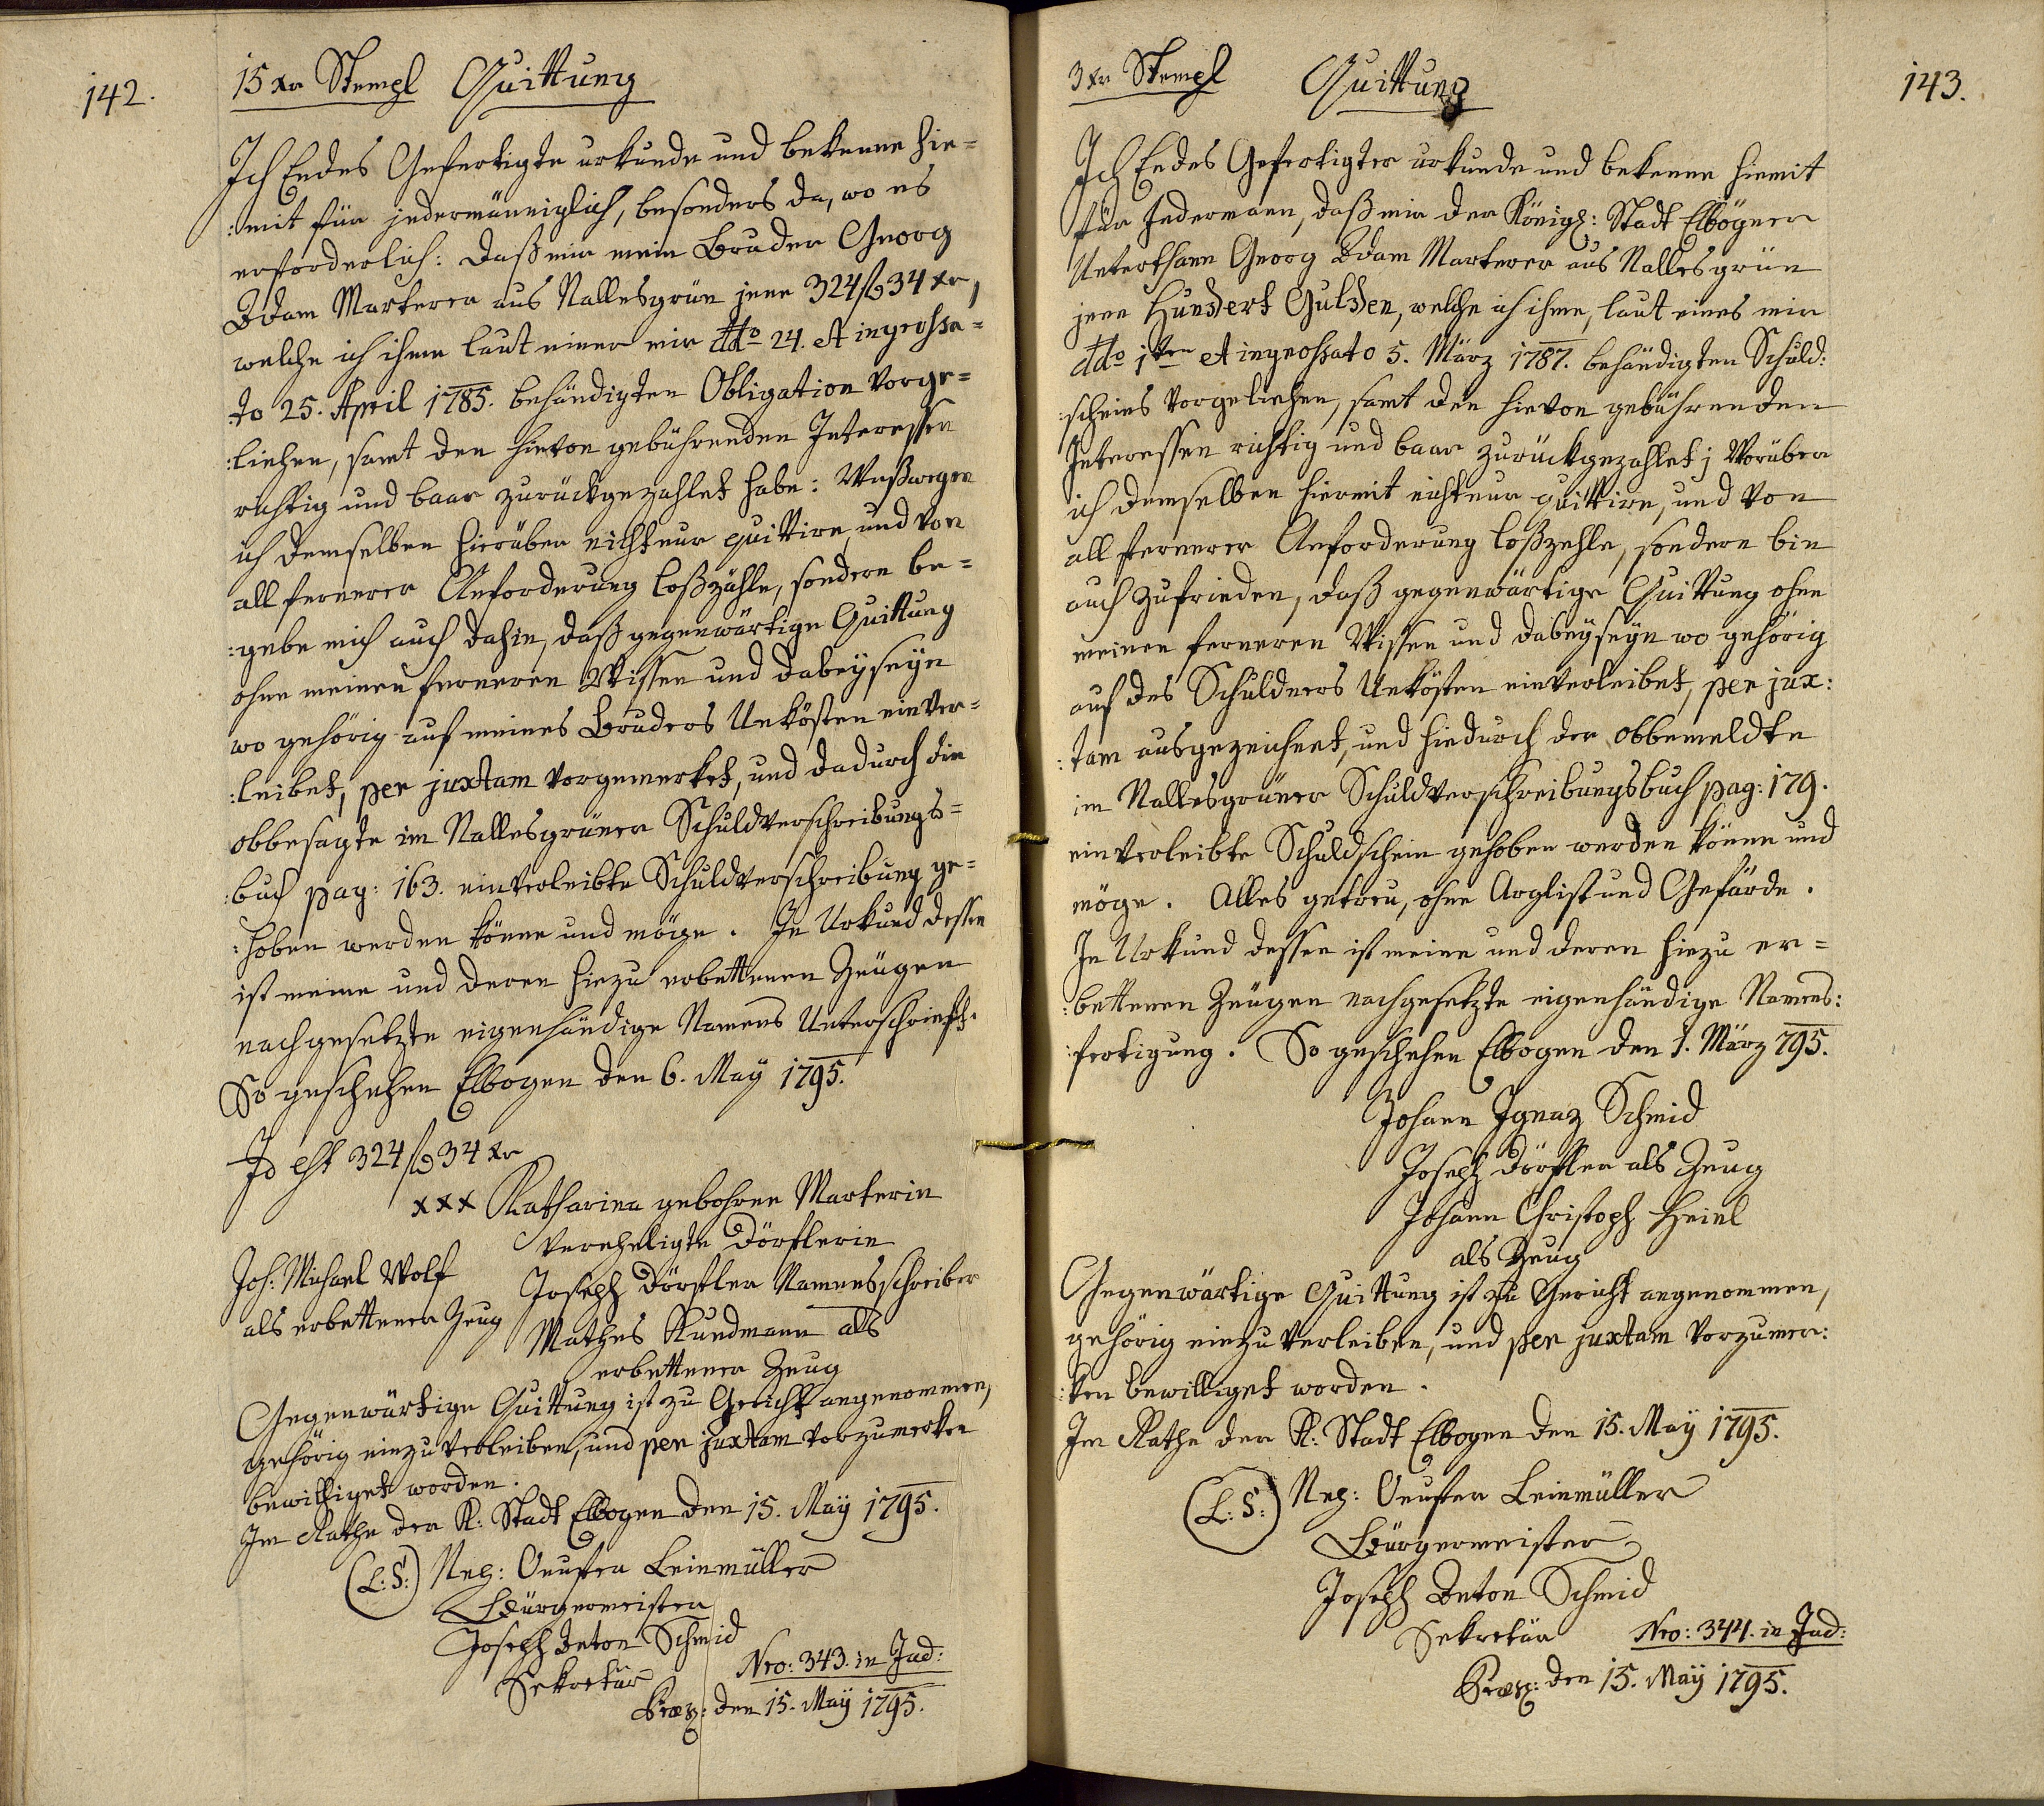 142.
15 xr Stempl Quittung
Ich Endes Gefertigte urkunde und bekenne hie=
:mit für jedermänniglich, besonders da, wo es
erforderlich: daß mir mein Bruder Georg
Adam Marterer aus Nallesgrün jene 324 fl 34 xr,
welche ich ihme laut einer mir ddo 24. et ingrossa=
:to 25. April 1785. behändigten Obligation vorge=
:liehen, samt den hievon gebührenden Interessen
richtig und baar zurückgezahlet habe: Weßwegen
ich demselben hierüber nicht nur quittire, und von
all fernerer Anforderung loßzähle, sondern be=
:gebe mich auch dahin, daß gegenwärtige Quittung
ohne meinen ferneren Wissen und Dabeyseyn
wo gehörig auf meines Bruders Unkösten einver=
:leibet, per juxtam vorgemerket, und dadurch die
obbesagte im Nallesgrüner Schuldverschreibungs=
:buch pag: 163. einverleibte Schuldverschreibung ge=
:hoben werden könne und möge. In Urkund dessen
ist meine und deren hiezu erbettenen Zeugen
nachgesetzte eigenhändige Namens Unterschrift.
So geschehen Elbogen den 6. May 1795.
Id est 324 fl 34 xr
xxx Katharina gebohrne Marterin
verehligte Dörflerin
Joh: Michael Wolf
als erbettener Zeug
Joseph Dörfler Namensschreiber
Mathes Kundmann als
erbettener Zeug
Gegenwärtige Quittung ist zu Gericht angenommen,
gehörig einzuverleiben, und per juxtam vorzumerken
bewilliget worden.
Im Rathe der K: Stadt Elbogen den 15. May 1795.
(L: S:) Leinmüller
Bürgermeister
Joseph Anton Schmid
Sekretär
Nro: 343. in Jud:
Præs: den 15. May 1795.
143.
3 xr Stempl Quittung
Ich Endes Gefertigter urkunde und bekenne hiemit
für Jedermann, daß mir der Königl: Stadt Elbögner
Unterthann Georg Adam Marterer aus Nallesgrün
jene Hundert Gulden, welche ich ihme, laut eines mir
ddo 1ten et ingrossato 5. März 1787. behändigten Schuld:
:scheins vorgeliehen, samt den hievon gebührenden
Interessen richtig und baar zurückgezahlet; Worüber
ich demselben hiermit nicht nur quittire, und von
all fernerer Anforderung loßzehle, sondern bin
auch zufrieden, daß gegenwärtige Quittung ohne
meinen ferneren Wissen und Dabeyseyn wo gehörig
auf des Schuldners Unkösten einverleibet, per jux:
:tam ausgezeichnet, und hiedurch der obbemeldte
im Nallesgrüner Schuldverschreibungsbuch pag: 179.
einverleibte Schuldschein gehoben werden könne und
möge. Alles getreu, ohne Arglist und Gefärde.
In Urkund dessen ist meine und deren hiezu er=
:bettenen Zeugen nachgesetzte eigenhändige Namens:
:fertigung. So geschehen Elbogen den 1. März 795.
Johann Ignaz Schmid
Joseph Dörfler als Zeug
Johann Christoph Heinl
als Zeug
Gegenwärtige Quittung ist zu Gericht angenommen,
gehörig einzuverleiben, und per juxtam vorzumer:
:ken bewilliget worden.
Im Rathe der K: Stadt Elbogen den 15. May 1795.
(L: S:) Leinmüller
Bürgermeister
Joseph Anton Schmid
Sekretär
Nro: 344. in Jud:
Præs: den 15. May 1795.